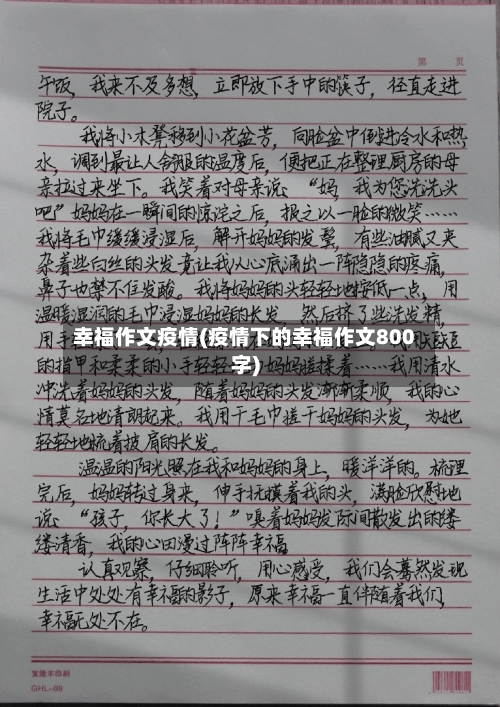 第 页
午饭，我来不及多想，立即放下手中的筷子，径直走进
院子。
我将小木凳移到小花盆旁，向脸盆中倒进冷水和热
水，调到最让人舒服的温度后，便把正在整理厨房的母
亲拉过来坐下。我笑着对母亲说：“妈，我为您洗洗头
吧！”妈妈在一瞬间的惊诧之后，报之以一脸的微笑……
我将毛巾缓缓浸湿后，解开妈妈的发髻，有些油腻又夹
杂着些白丝的头发竟让我从心底涌出一阵隐隐的疼痛，
鼻子也禁不住发酸。我将妈妈的头轻轻地按低一点，用
温暖湿润的毛巾浸湿妈妈的长发，然后挤了些洗发精，
用手
幸福作文疫情(疫情下的幸福作文800
字)
的指甲和柔柔的小手轻轻 妈妈搓揉着……我用清水
冲洗着妈妈的头发，随着妈妈的头发渐渐柔顺，我的心
情莫名地清朗起来。我用干毛巾搓干妈妈的头发，为她
轻轻地梳着披肩的长发。
温温的阳光照在我和妈妈的身上，暖洋洋的。梳理
完后，妈妈转过身来，伸手抚摸着我的头，满脸欣慰地
说：“孩子，你长大了！”嗅着妈妈发际间散发出的缕
缕清香，我的心田漫过阵阵幸福。
认真观察，仔细聆听，用心感受，我们会蓦然发现
生活中处处有幸福的影子，原来幸福一直伴随着我们，
幸福无处不在。
宣隆丰印刷
GHL-88